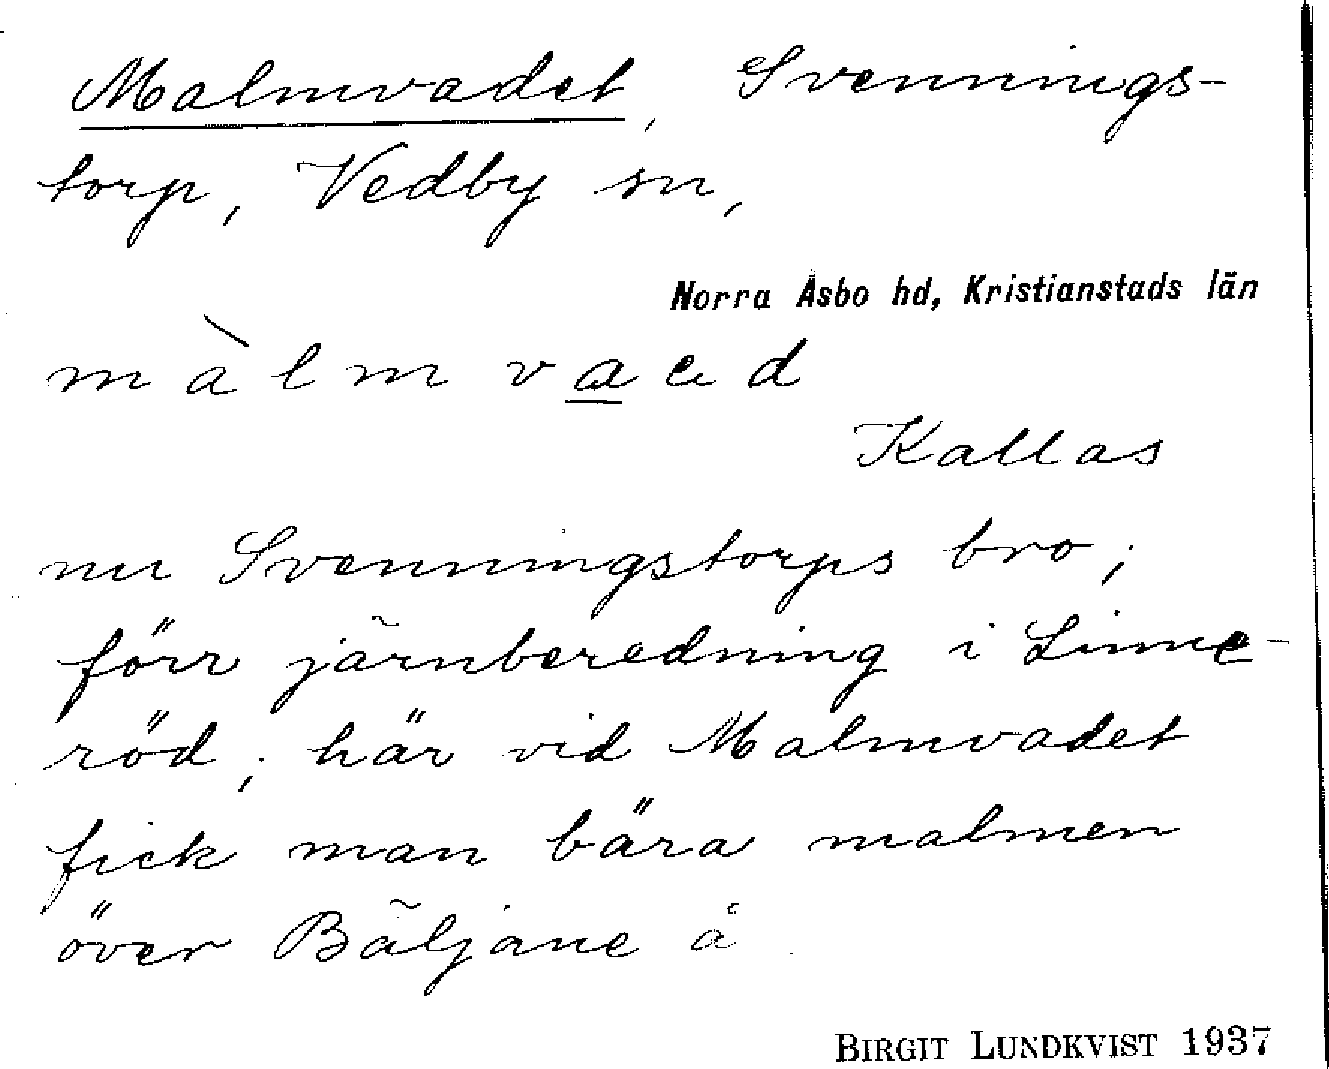 Malmvadet, Svennings-
torp, Vedby sn,
Norra Åsbo hd, Kristianstads län
màlm
Kallas
nu Svenningstorps bro;
förr järnberedning i Linne-
röd; här vid Malmvadet
fick man bära malmen
över Bäljane å
BIRGIT LUNDKVIST 1937